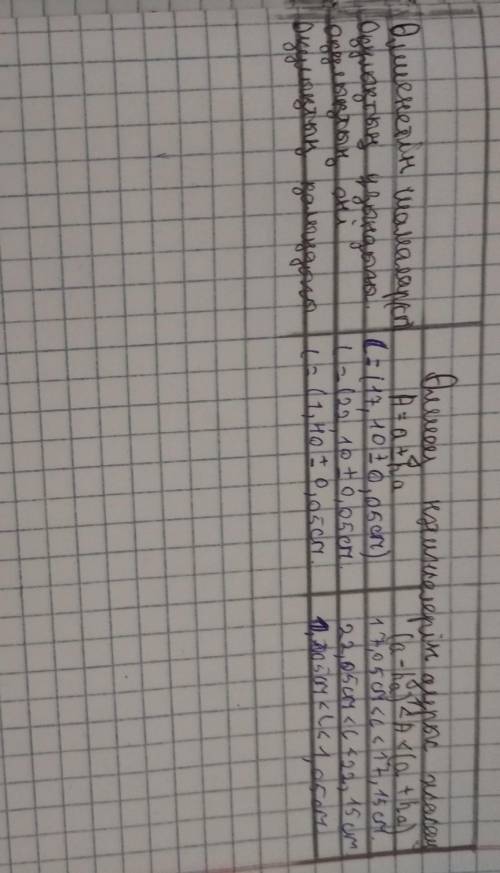 Өлшенетін шамалар Өлшеу нәтижелерін дұрыс жазу
A = a ± ha (a - ha) < A < (a + ha)
Оқулықтың ұзындығы. l = (17,10 ± 0,05см) 17,05см < l < 17,15см.
оқулықтың ені l = (22,10 ± 0,05см. 22,05см < l < 22,15см
Оқулықтың қалыңдығы l = (1,40 ± 0,05см. < l < 1,05см